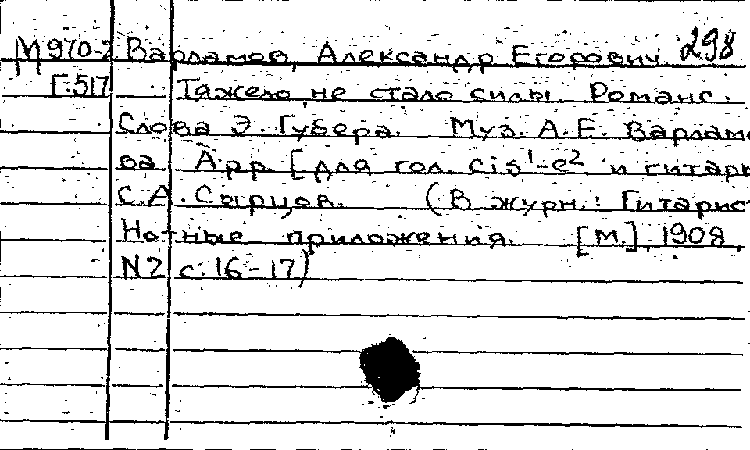 М970-2 Варламов, Александр Егорович 298
Г.517 Тяжело, не стало силы. Романс.
Слова Э. Губера. Муз. А.Е. Варламо
ва. Арр. [для гол. cis¹-e² и гитары
С.А. Сырцов. (В журн.: Гитарис
Нотные приложения. [М.], 1908,
N2 с. 16-17)